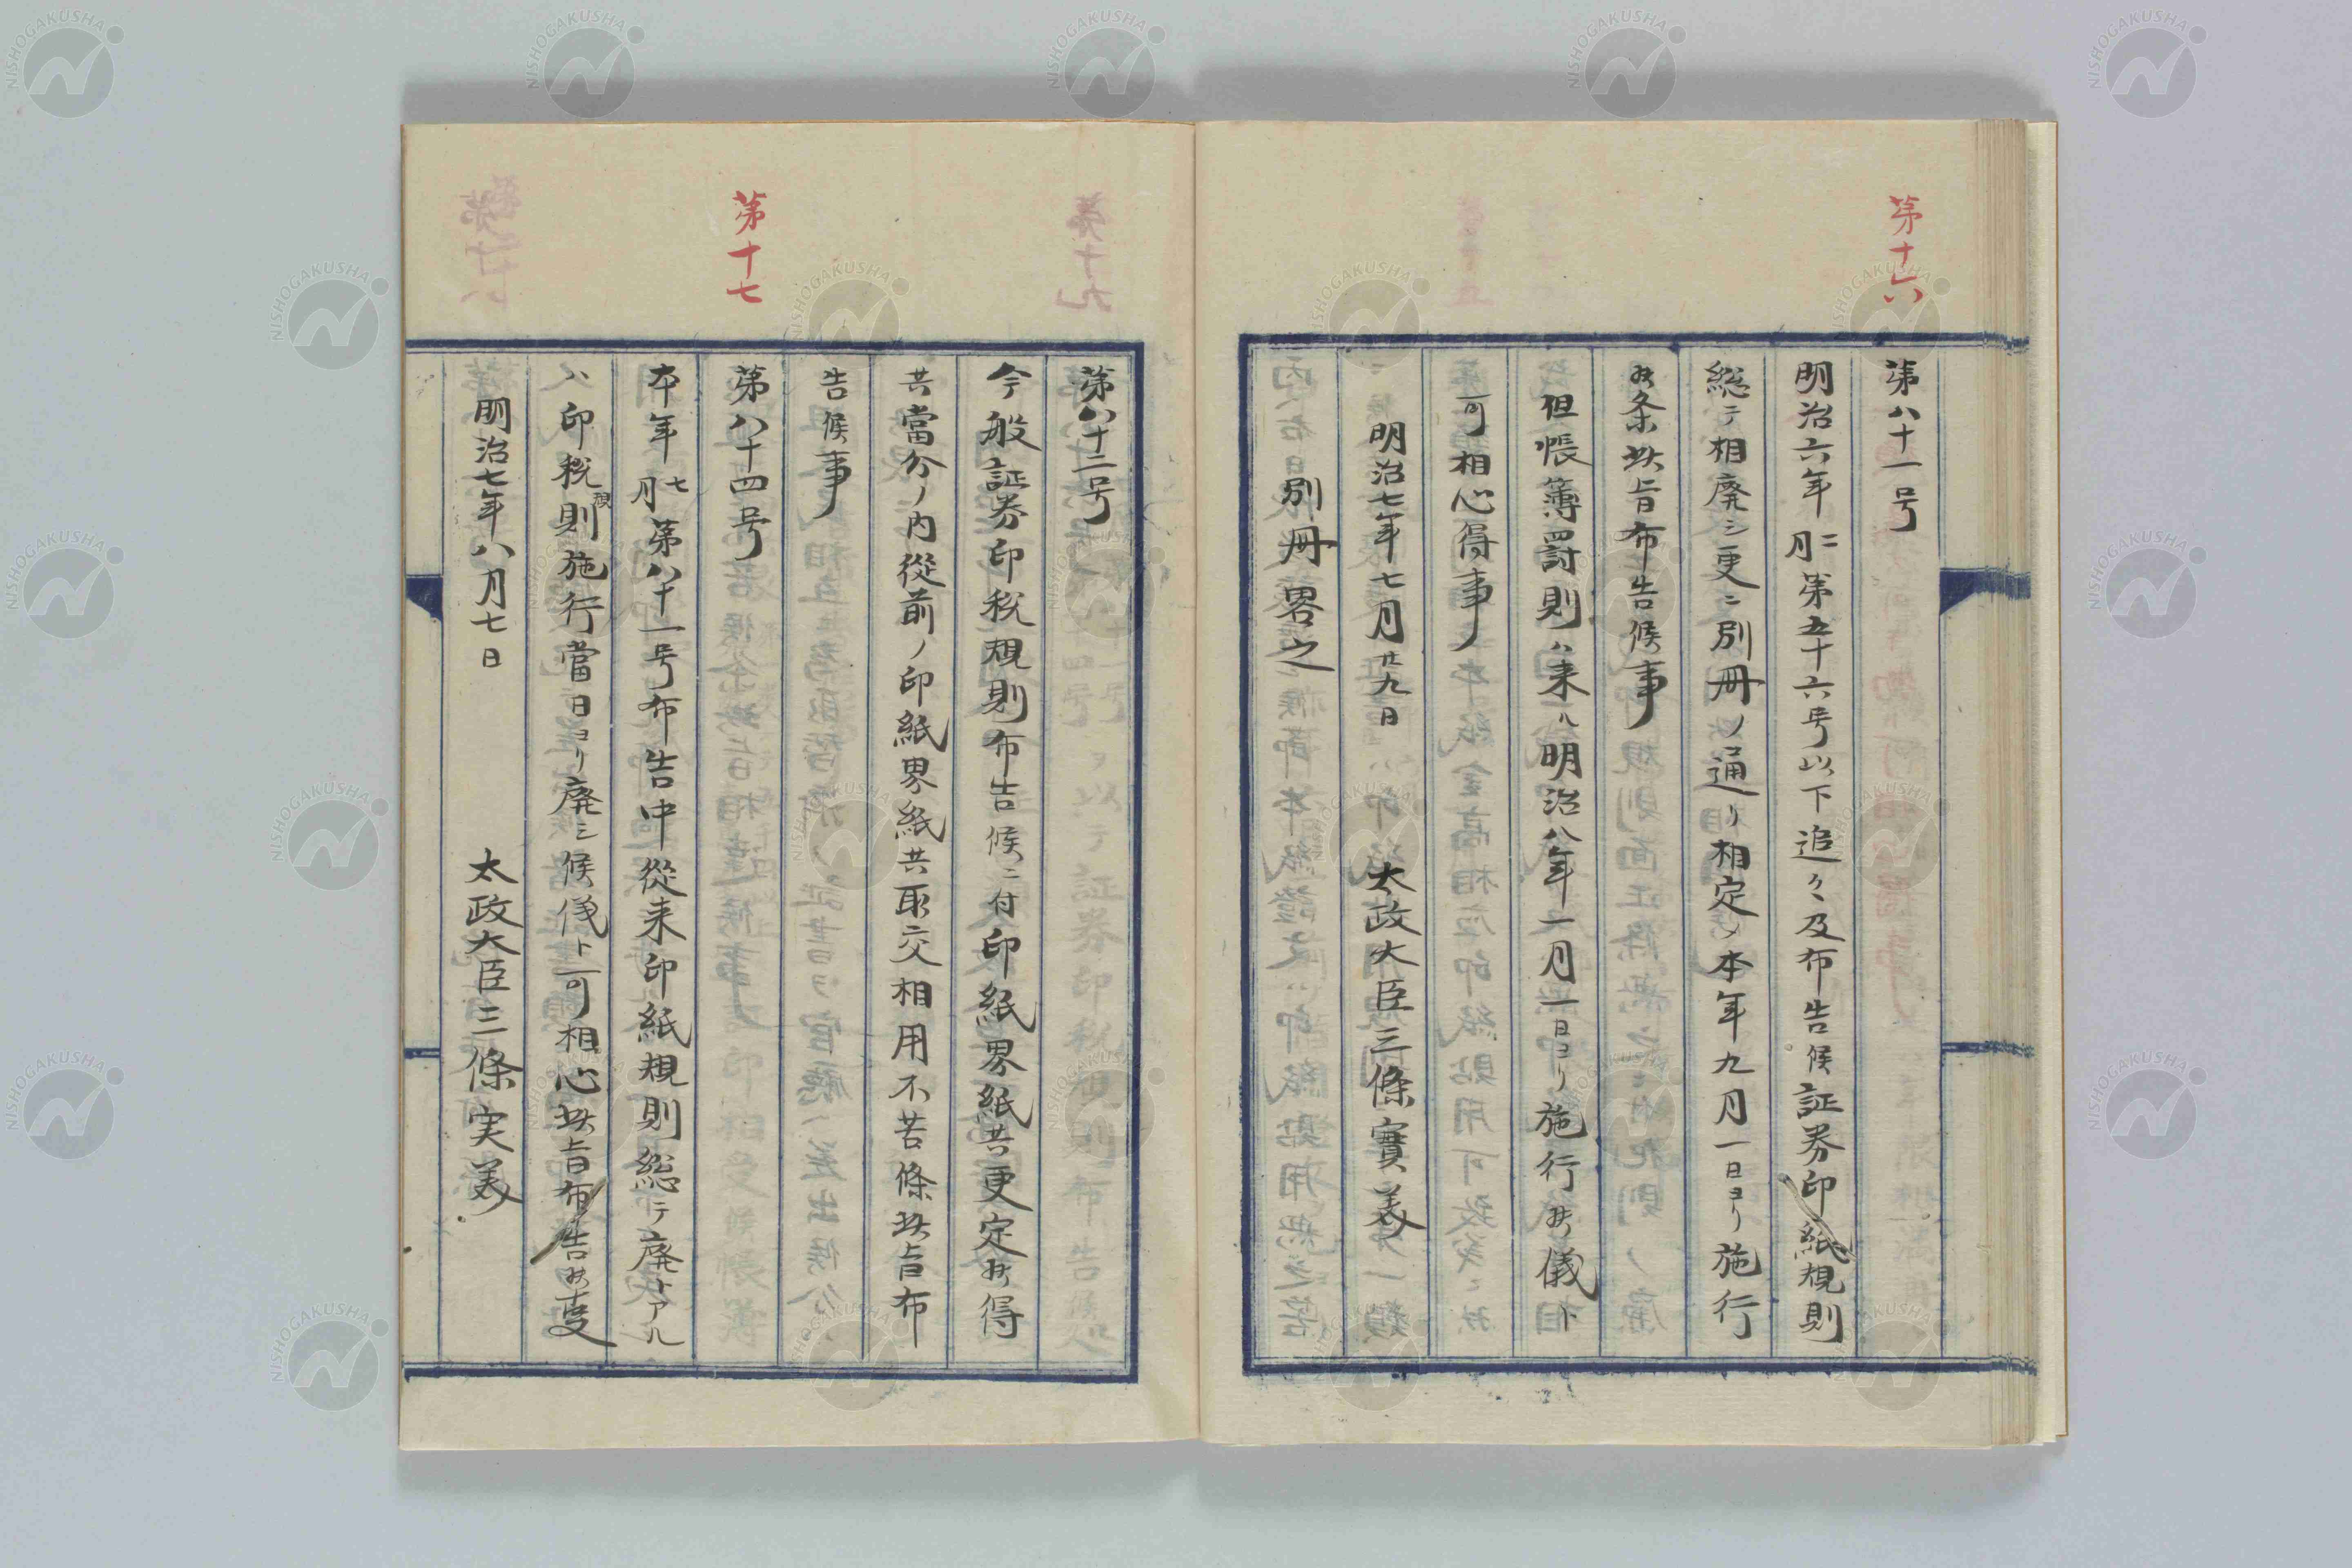 第十六
第八十一号
明治六年二月第五十六号以下追々及布告候証券印紙規則
総テ相廃シ更ニ別冊ノ通リ相定メ本年九月一日ヨリ施行
候条此旨布告候事
但帳簿罰則ハ来ル明治八年一月一日ヨリ施行候儀ト
可相心得事
明治七年七月廿九日 太政大臣三條實美
別冊畧之
第八十二号
今般証券印税規則布告候ニ付印紙界紙共更定候得
共當分ノ内従前ノ印紙界紙共取交相用不苦條此旨布
告候事
第十七
第八十四号
本年七月第八十一号布告中従来印紙規則総テ廃トアル
ハ印税規則施行當日ヨリ廃シ候儀ト可相心此旨布告候事
明治七年八月七日 太政大臣三條実美
NISHOGAKUSHA